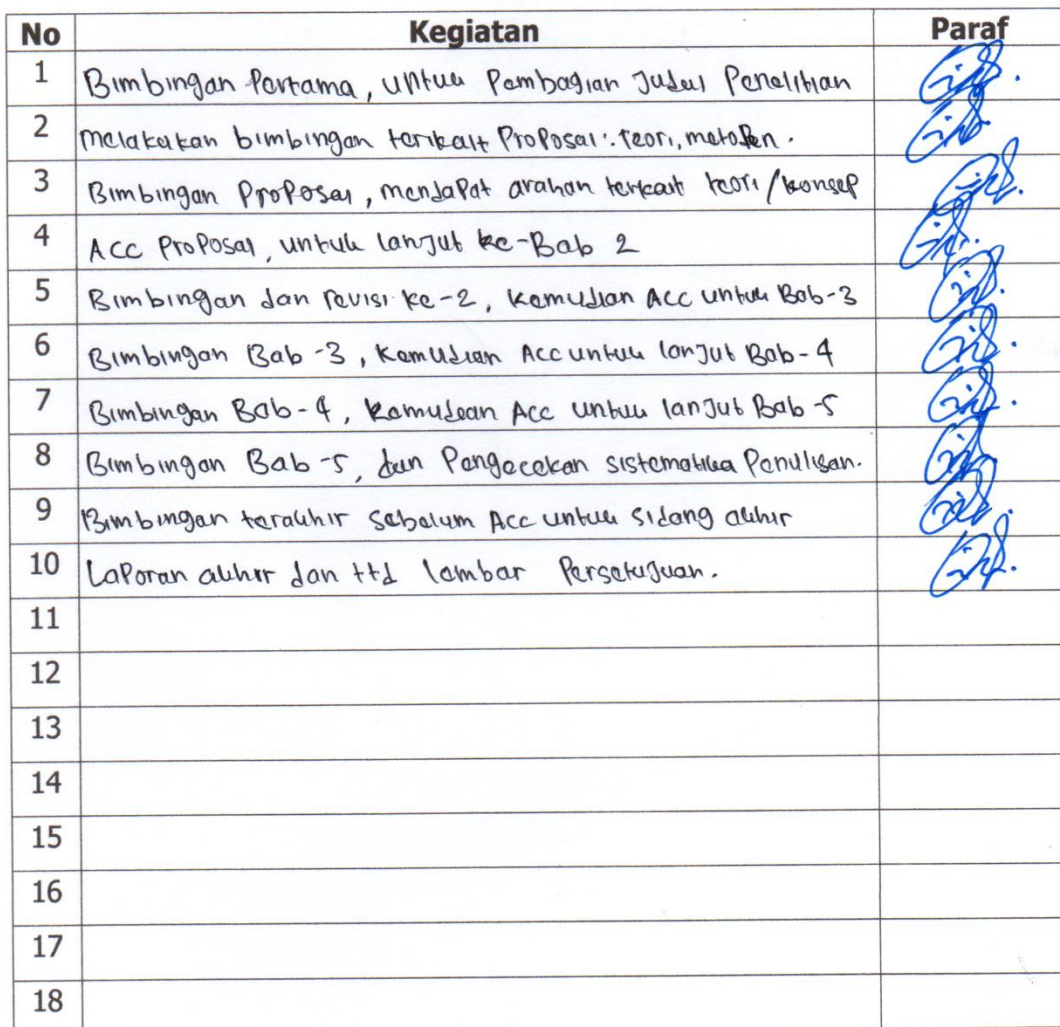 No Kegiatan Paraf
1 Bimbingan Pertama, untuk Pembagian Judul Penelitian
2 Melakukan bimbingan terikait Proposal: teori, metopen.
3 Bimbingan Proposal, mendapat arahan terkait teori/konsep
4 ACC Proposal, untuk lanjut ke-Bab 2
5 Bimbingan dan revisi ke-2, kemudian Acc untuk Bab-3
6 Bimbingan Bab-3, kemudian Acc untuk lanjut Bab-4
7 Bimbingan Bab-4, kemudian Acc untuk lanjut Bab-5
8 Bimbingan Bab-5, dan Pengecekan sistematika Penulisan.
9 Bimbingan terakhir sebelum Acc untuk sidang akhir
10 Laporan akhir dan ttd lembar Persetujuan.
11
12
13
14
15
16
17
18